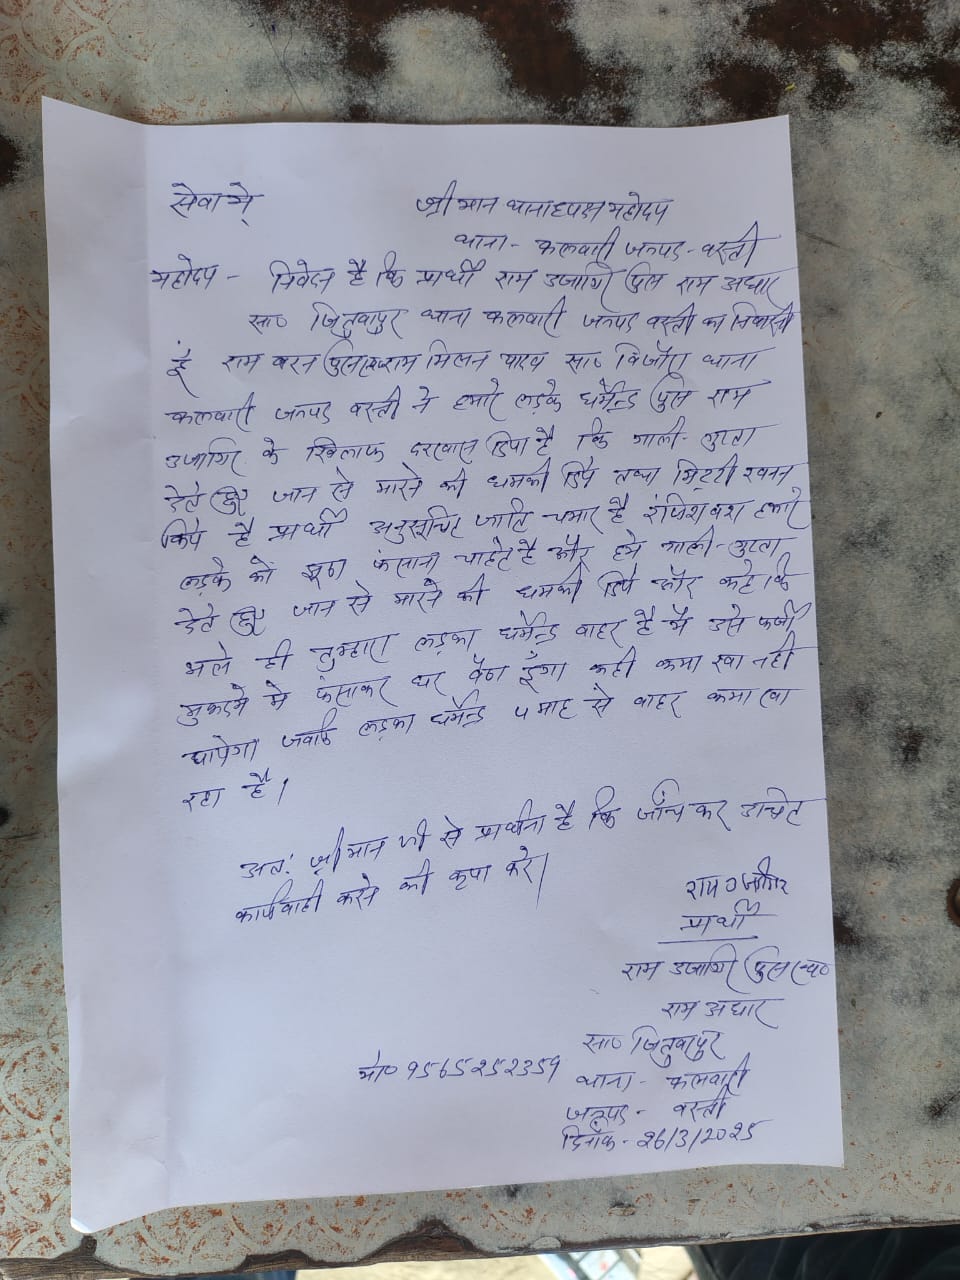 सेवा मे,
श्रीमान थानाध्यक्ष महोदय
थाना - कलवारी जनपद - बस्ती
महोदय - निवेदन है कि प्रार्थी राम उजागिर पुत्र राम अधार
सा० जितुवापुर थाना कलवारी जनपद बस्ती का निवासी
हूँ राम बरन पुत्र राम मिलन यादव सा० थाना
कलवारी जनपद बस्ती ने हमारे लड़के धर्मेन्द्र पुत्र राम
उजागिर के खिलाफ दरखास दिया है कि गाली-गुप्ता
देते हुए जान से मारने की धमकी दिये तथा मिट्टी खनन
किये है प्रार्थी अनुसूचित जाति चमार है रंजिश वश हमारे
लड़के को झूठा फंसाना चाहते है और हमे गाली-गुप्ता
देते हुए जान से मारने की धमकी दिये और कहे कि
भले ही तुम्हारा लड़का धर्मेन्द्र बाहर है मै उसे फर्जी
मुकदमे मे फंसाकर घर बैठा दूँगा कही कमा खा नही
पायेगा जबकि लड़का धर्मेन्द्र माह से बाहर कमा खा
रहा है।
अतः श्रीमान जी से प्रार्थना है कि जाँच कर उचित
कार्यवाही करने की कृपा करे।
राम उजागिर
प्रार्थी
राम उजागिर पुत्र स्व०
राम अधार
सा० जितुवापुर
मो० 9565252359
थाना - कलवारी
जनपद - बस्ती
दिनाँक - 26/3/2025